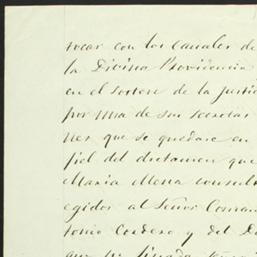 tocar con los Canales de
la Divina Providencia
en el sosten de la justi
por una de sus secretar
nes que se quedase en
fiel del dictamen que
Maria Mena consul
egidos al Señor Coman
tonio Cordero y del D
que